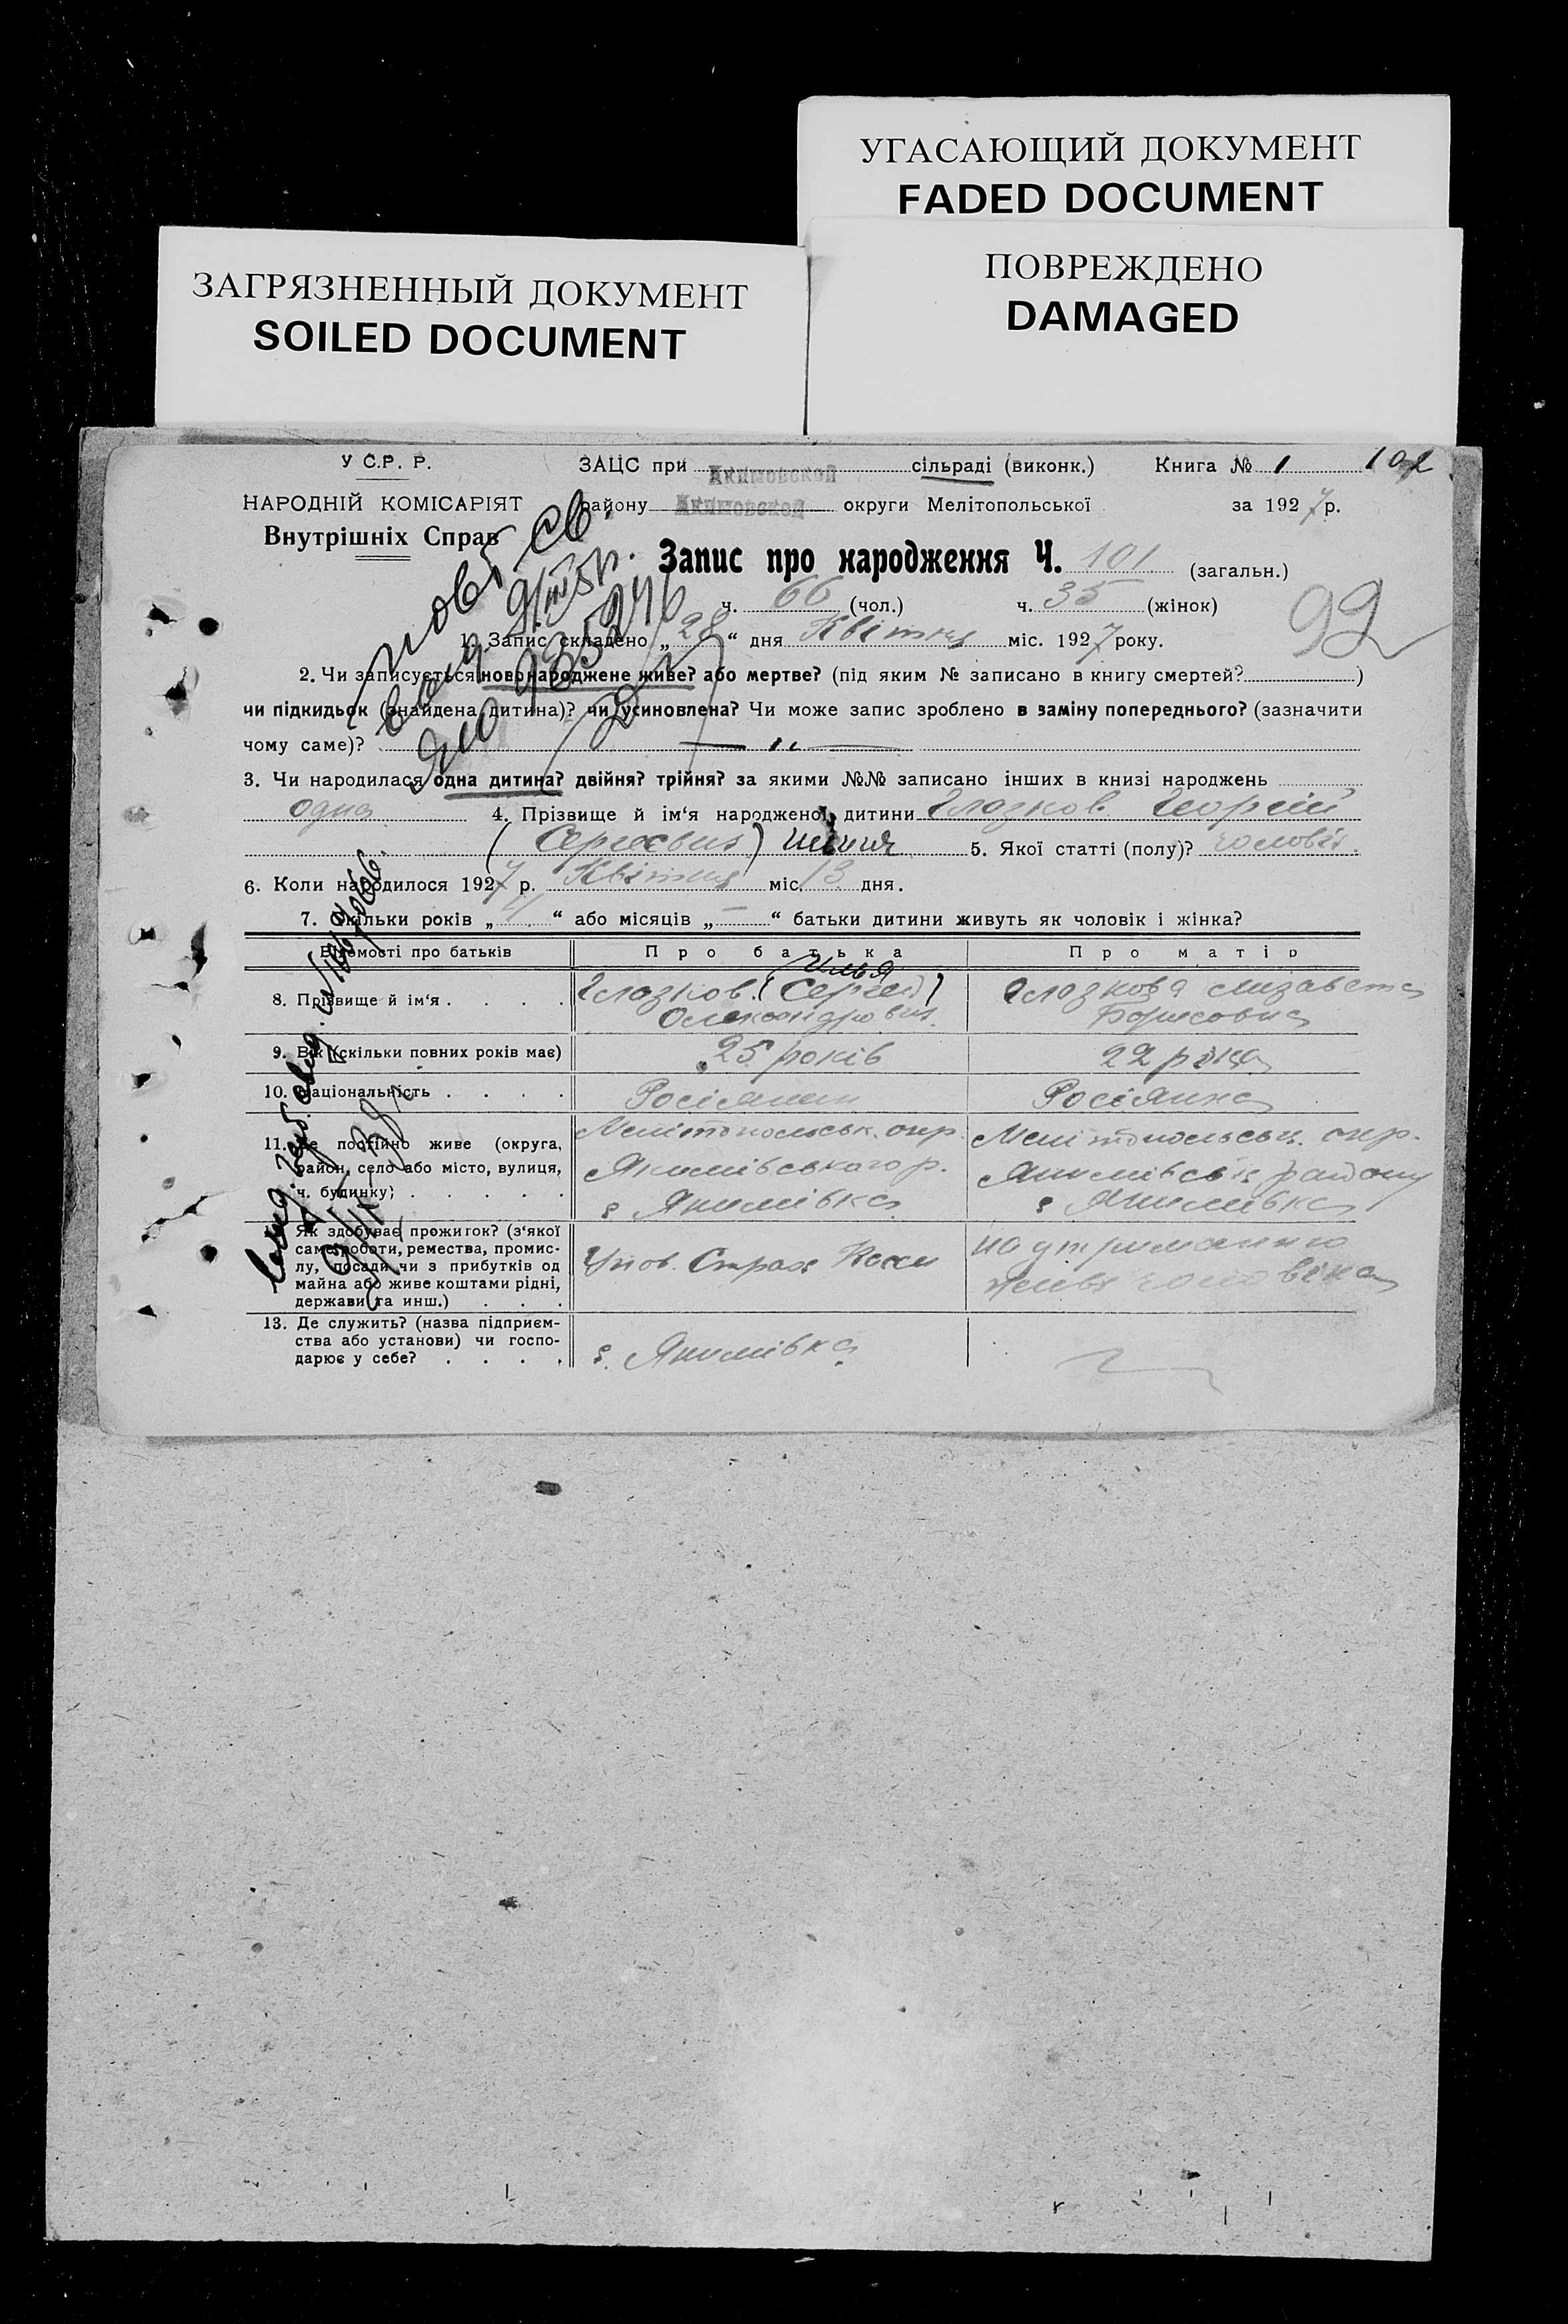 УГАСАЮЩИЙ ДОКУМЕНТ
FADED DOCUMENT
ЗАГРЯЗНЕННЫЙ ДОКУМЕНТ
SOILED DOCUMENT
ПОВРЕЖДЕНО
DAMAGED
У С.Р. Р. ЗАЦС при Акимовской сільраді (виконк.) Книга № 1 102
НАРОДНІЙ КОМІСАРІЯТ району Акимовской округи Мелітопольської за 1927 р.
Внутрішніх Справ
Запис про народження Ч. 101 (загальн.)
ч. 66 (чол.) ч. 35 (жінок) 92
1. Запис складено „ 28 “ дня Квітня міс. 1927 року.
2. Чи записується новонароджене живе? або мертве? (під яким № записано в книгу смертей? )
чи підкидьок (знайдена дитина)? чи усиновлена? Чи може запис зроблено в заміну попереднього? (зазначити
чому саме)?
3. Чи народилася одна дитина? двійня? трійня? за якими №№ записано інших в книзі народжень
одна 4. Прізвище й ім‘я народженої дитини Глазков Георгій
(Сергеєвич) 5. Якої статті (полу)? чоловіч.
6. Коли народилося 1927 р. Квітня міс. 13 дня.
7. Скільки років „ 4 “ або місяців „ — “ батьки дитини живуть як чоловік і жінка?
Відомості про батьків Про батька Про матір
Илья
8. Прізвище й ім‘я . . . . Глазков (Сергей) Глазкова Єлизавета
Олександрович Борисовна
9. Вік (скільки повних років має) 25 років 22 рока
10. Національність . . . . Росіянин Росіянка
11. Де постійно живе (округа, Мелітопольськ. окр. Мелітопольськ. окр.
район, село або місто, вулиця, Якимівського р. Якимівськ району
ч. будинку) . . . . . с Якимівка с Якимівка
12. Як здобуває прожиток? (з‘якої
саме роботи, ремества, промис- на утриманню
лу, посади чи з прибутків од Упов. Страх Каси
майна або живе коштами рідні, чоловіка
держави та инш.) . . .
13. Де служить? (назва підприєм-
ства або установи) чи госпо-
дарює у себе? . . . . с. Якимівка